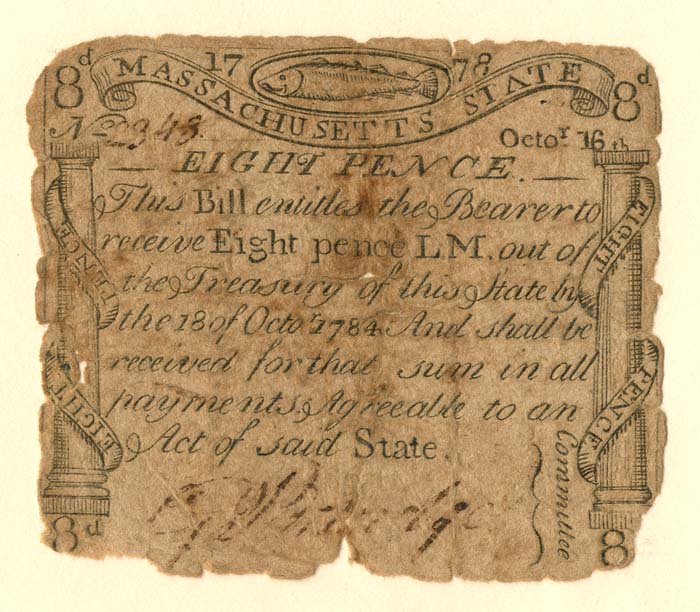 8d 17 78 8d
MASSACHUSETTS STATE
No 2348. Octor 16th
EIGHT PENCE.
This Bill entitles the Bearer to
receive Eight pence LM. out of
the Treasury of this State by
the 18 of Octor 1784. And shall be
received for that sum in all
payments Agreeable to an
Act of said State.
PENCE
EIGHT
EIGHT
PENCE
Committee
8d 8